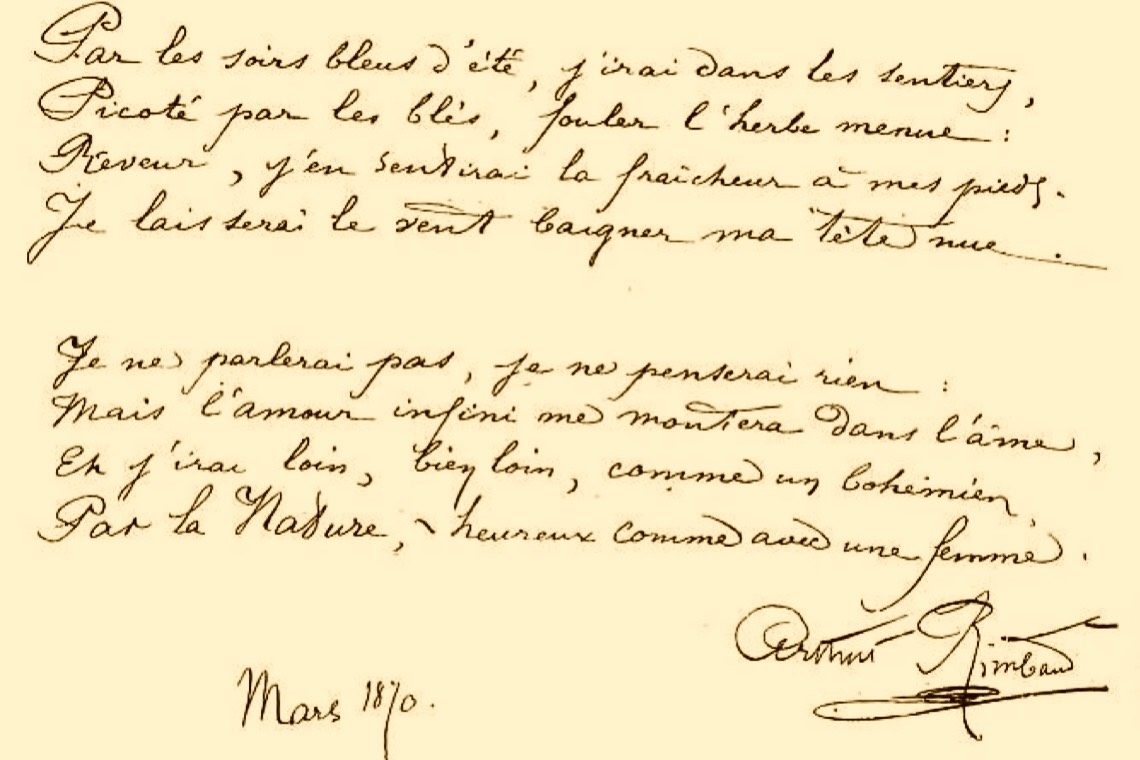 Par les soirs bleus d'été, j'irai dans les sentiers,
Picoté par les blés, fouler l'herbe menue :
Rêveur, j'en sentirai la fraîcheur à mes pieds.
Je laisserai le vent baigner ma tête nue.
Je ne parlerai pas, je ne penserai rien :
Mais l'amour infini me montera dans l'âme,
Et j'irai loin, bien loin, comme un bohémien,
Par la Nature, - heureux comme avec une femme.
Arthur Rimbaud
Mars 1870.